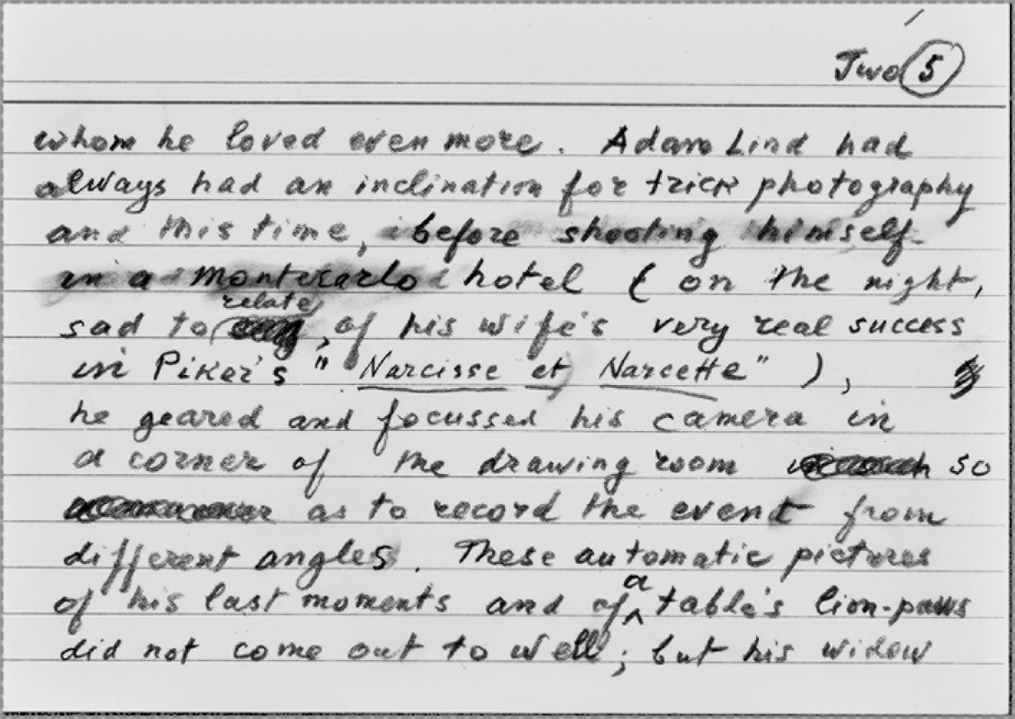 Two 5
whom he loved even more. Adam Lind had
always had an inclination for trick photography
and this time, before shooting himself
in a Montecarlo hotel ( on the night,
relate
sad to , of his wife's very real success
in Piker's " Narcisse et Narcette" ),
he geared and focussed his camera in
a corner of the drawing room so
as to record the event from
different angles. These automatic pictures
a
of his last moments and of table's lion-paws
did not come out to well; but his widow